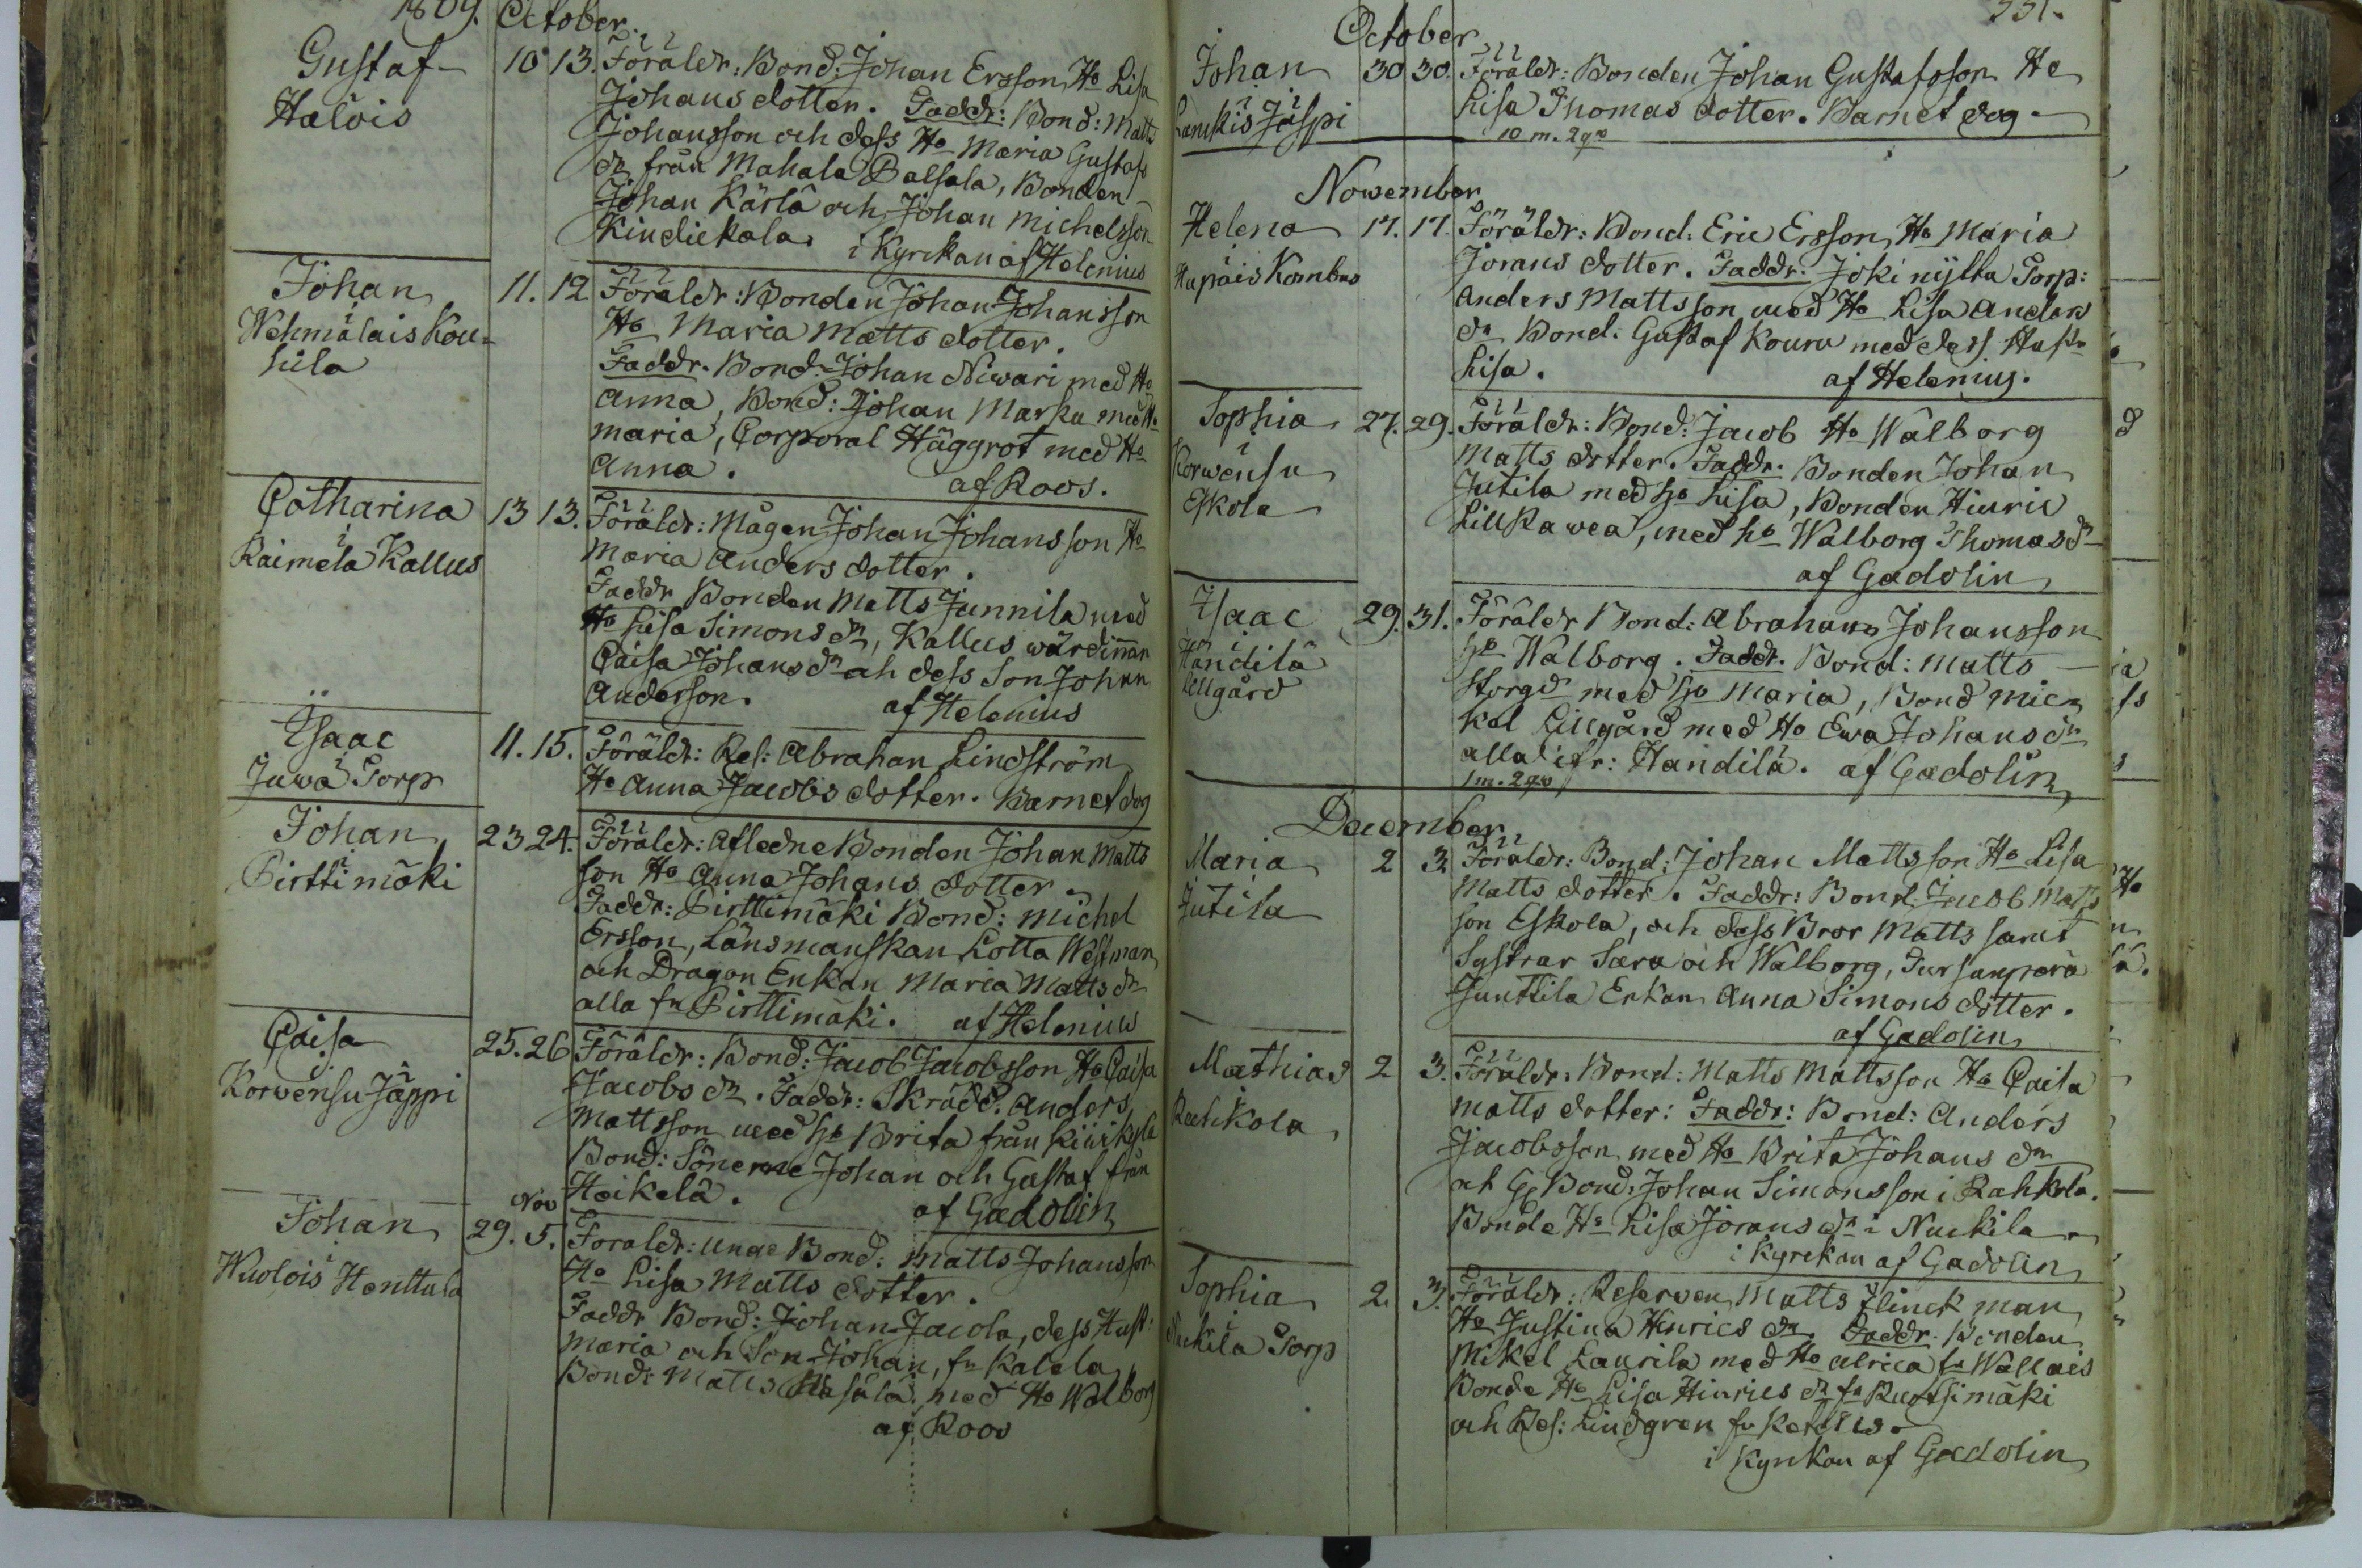 1809. October.
Gustaf
Halois
10 13. Föräldr: Bond: Johan Ersson, Ho Lisa
Johansdotter. Faddr: Bond: Matts
Johansson och dess Ho Maria Gustafs
dr från Mahala Palsala, Bonden
Johan Kärlä och Johan Michelsson
Kindickala. i Kyrckan af Helenius
Johan
Wehmälais Kou=
hila
11. 12 Föräldr: Bonden Johan Johansson
Ho Maria Matts dotter.
Faddr. Bond: Johan Niwari med Ho
Anna, Bond: Johan Marku med Ho
Maria, Corporal Häggrot med Ho
Anna. af Roos.
Catharina
Raimela Kallus
13 13. Föräldr: Mågen Johan Johansson Ho
Maria Anders dotter.
Faddr Bonden Matts Junnila med
Ho Lisa Simons dr, Kallus wärdinnan
Caisa Johans dr och dess Son Johan
Andersson. af Helenius
Isaac
Juwa Torp
11. 15. Föräldr: Res: Abraham Lindström
Ho Anna Jacobs dotter. Barnet dog
Johan
Pirttimäki
23 24. Föräldr: Afledne Bonden Johan Matts
son Ho Anna Johans dotter.
Faddr: Pirttimäki Bond: Michel
Ersson, Länsmanskan Lotta Westman
och Dragon Enkan Maria Matts dr
alla fr Pirttimäki. af Helenius
Caisa
Korvensu Jäppi
25. 26 Föräldr: Bond: Jacob Jacobsson Ho Caisa
Jacobs dr. Faddr: Skrädd. Anders
Mattsson med Ho Brita från Kiwikylä
Bond: Sönerne Johan och Gustaf från
Heikelä. af Gadolin
Johan
Wuolois Henttula
Nov
29. 5. Föräldr: unge Bond: Matts Johansson
Ho Lisa Matts dotter.
Faddr Bond: Johan Jacola, dess Hust:
Maria och Son Johan, fr Kalela
Bond: Matts Masala med Ho Walborg
af Roos
October 331.
Johan
Lamkis Jäspi
30 30. Föräldr: Bonden Johan Gustafsson Ho
Lisa Thomas dotter. Barnet dog.
10 m. 2 qw
November
Helena
Hupais Kombus
17. 17. Föräldr: Bond: Eric Ersson, Ho Maria
Jorans dotter. Faddr: Jokinijtta Torp:
Anders Mattsson med Ho Lisa Anders
dr Bond. Gustaf Kouru med dess Hustr
Lisa. af Helenius.
Sophia
Korwensu
Eskola
27. 29. Föräldr: Bond: Jacob Ho Walborg
Matts dotter. Faddr. Bonden Johan
Jutila med Ho Lisa, Bonden Hinric
Lillkawea, med ho Walborg Thomas dr
af Gadolin
Isaac
Handilä
Lillgård
29. 31. Föräldr Bond: Abraham Johansson
Ho Walborg. Faddr. Bond: Matts
Storgd med Ho Maria, Bond Mic
kel Lillgård med Ho Ewa Johans dr
alla ifr: Handilä. af Gadolin
1 m. 2 qw
December
Maria
Jutila
2 3 Föräldr: Bond: Johan Mattsson Ho Lisa
Matts dotter. Faddr: Bond: Jacob Matts
son Eskola, och dess Bror Matts samt
Systrar Sara och Walborg, Tursunperä
Junttila Enkan Anna Simons dotter.
af Gadolin
Mathias
Rahkola
2 3. Föräldr: Bond: Matts Mattsson Ho Caisa
Matts dotter: Faddr: Bond: Anders
Jacobsson med Ho Brita Johans dr
Bond: Johan Simonsson i Rahkola.
Bonde Ho Lisa Jörans dr i Nuckila
i Kyrckan af Gadolin
Sophia
Nuckila Torp
2. 3. Föräldr: Reserven Matts Flinckman
Ho Justina Hinrics dr. Faddr. Bonden
Mikel Laurila med Ho Ulrica fr Wallais
Bonde Ho Lisa Hinrics dr fr Ruotsimäki
och Res: Lindgren fr
i Kyrkan af Gadolin